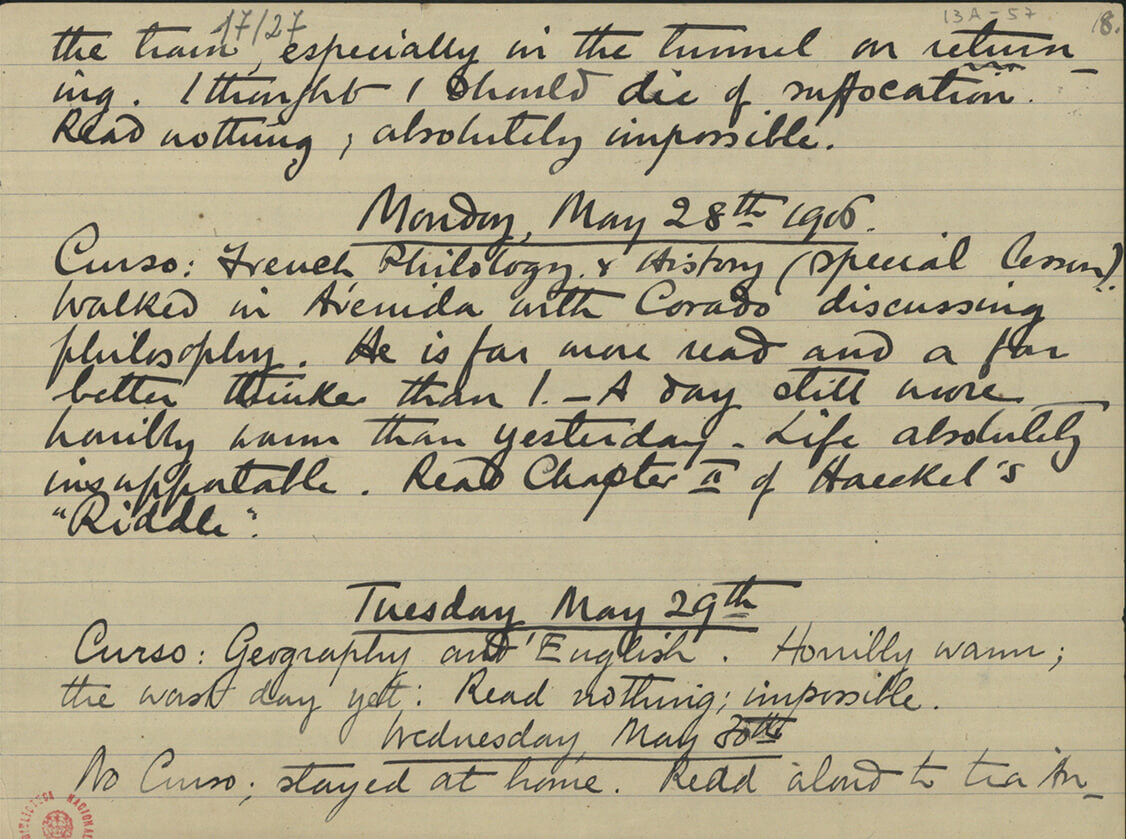 17/27
13A-57
8.
the train, especially in the tunnel on return_
ing. I thought I should die of suffocation.
Read nothing; absolutely impossible.
Monday, May 28th 1906.
Curso: French Philology & History (special lesson).
Walked in Avenida with Corado discussing
philosophy. He is far more read and a far
better thinker than I. — A day still more
horribly warm than yesterday. Life absolutely
insupportable. Read Chapter II of Haeckel's
"Riddle".
Tuesday May 29th
Curso: Geography and English. Horribly warm;
the worst day yet: Read nothing; impossible.
Wednesday, May 30th
No Curso; stayed at home. Read aloud to tia An_
BIBLIOTECA NACIONAL